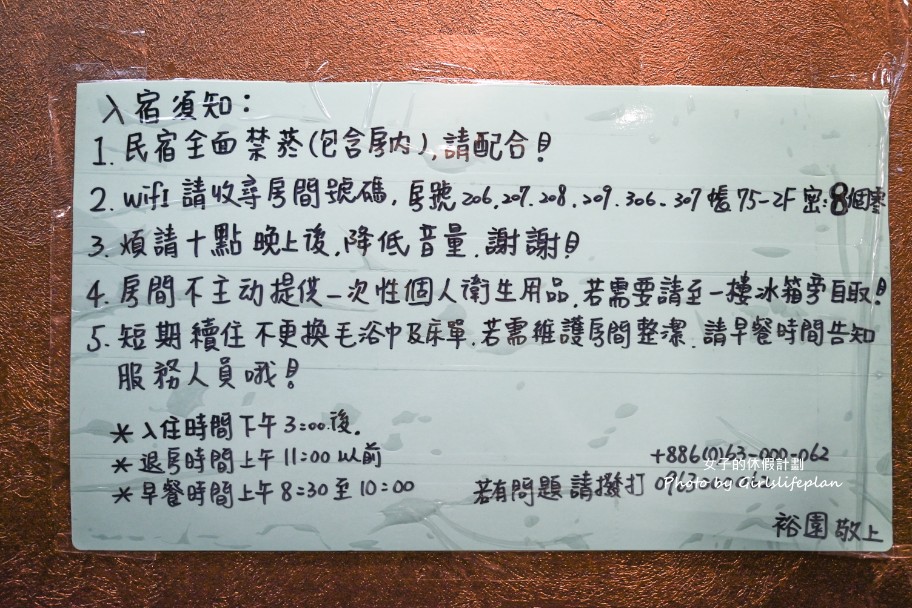 入宿須知：
1. 民宿全面禁菸(包含房内),請配合!
2. wifi 請收尋房間號碼, 房號206.207.208.209.306.307 帳75-2F 密:8個零
3. 煩請十點晚上後,降低音量.謝謝!
4. 房間不主动提供一次性個人衛生用品.若需要請至一樓冰箱旁自取!
5. 短期續住不更換毛浴巾及床單.若需維護房間整潔.請早餐時間告知
服務人員哦!
*入住時間下午3:00.後.
*退房時間上午11:00以前
+886(0)63-000-062
女子的休假計劃
Photo by Girlslifeplan
*早餐時間上午8:30至10:00
若有問題請撥打
裕園 敬上